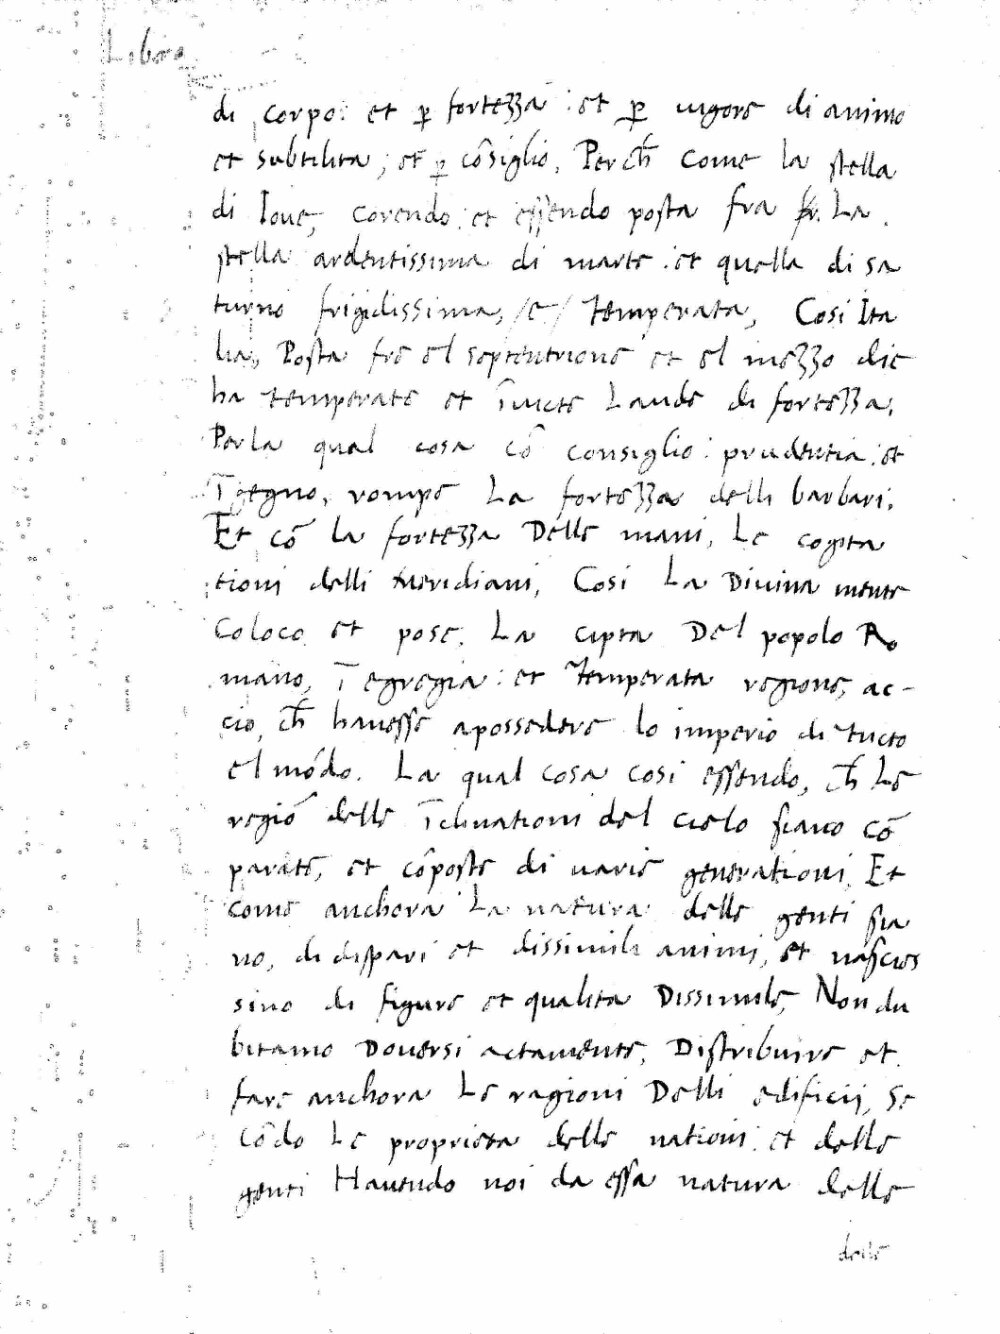 Libro
di corpo: et ꝑ fortezza: et ꝑ uigore di animo
et subtilita; et ꝑ cōsiglio, Perch̄ come la stella
di Ioue, corendo: et essendo posta fra La
stella ardentissima di marte: et quella di sa
turno frigidissima, /e/ temperata, Cosi Ita
lia, Posta fre el septentrione et el mezzo die
ha temperate et īuicte Laude di fortezza,
Per la qual cosa cō consiglio: prudentia: et
Īgegno, rompe La fortezza delli barbari.
Et cō la fortezza Delle mani, Le cogita
tioni delli Meridiani, Cosi La Diuina mente
Coloco et pose, La cipta Del popolo Ro
mano, ī egregia: et temperata regione, ac-
cio, ch̄ hauesse apossedere lo imperio di tucto
el mōdo. La qual cosa cosi essendo, ch̄ Le
regiō delle īclinationi del cielo siano cō
parate, et cōposte di uarie generationi, Et
come anchora La natura delle genti sia
no, di dispari et dissimili animi, et nascies
sino di figure et qualita Dissimile, Non du
bitamo Douersi actamente, Distribuire et
fare anchora Le ragioni Delli edificii, Se
cōdo Le proprieta delle nationi: et delle
genti Hauendo noi da essa natura delle
delle